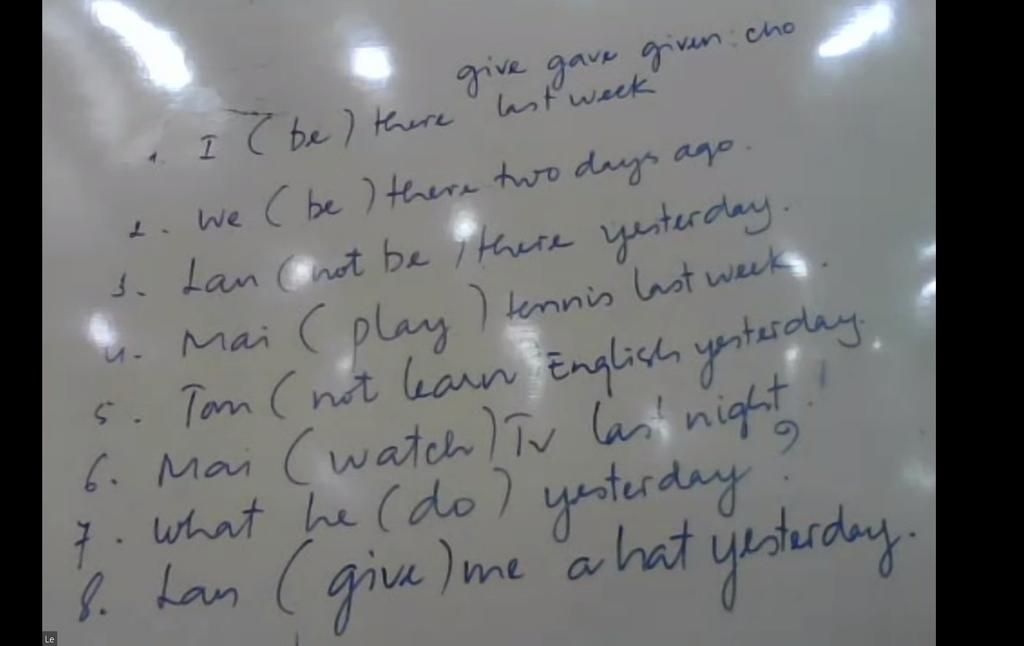 give gave given: cho
1. I (be) there last week
2. We (be) there two days ago.
3. Lan (not be) there yesterday.
4. Mai (play) tennis last week.
5. Tom (not learn English yesterday.
6. Mai (watch) Tv last night.
7. What he (do) yesterday?
8. Lan (give) me a hat yesterday.
Le